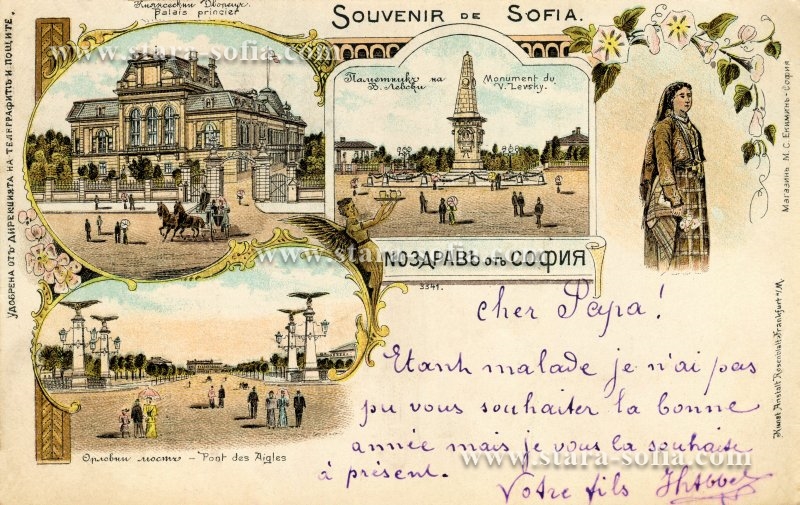 Княжовский Дворецъ.
Palais princier
SOUVENIR DE SOFIA.
www.stara-sofia.com
Паметникъ на
В. Левски
Monument du
V. Levsky.
УДОБРЕНА ОТЪ ДИРЕКЦИЯТА НА ТЕЛЕГРАФИТѢ И ПОЩИТЕ.
Магазинъ М. С. Екиминъ - София
ПОЗДРАВЬ отъ СОФИЯ
www.stara-sofia.com
3341.
cher Papa!
Etant malade je n'ai pas
pu vous souhaiter la bonne
année mais je vous la souhaite
à présent.
Votre fils
Орловий мостъ – Pont des Aigles
www.stara-sofia.com
Kunst Anstalt Rosenblatt, Frankfurt a/M.